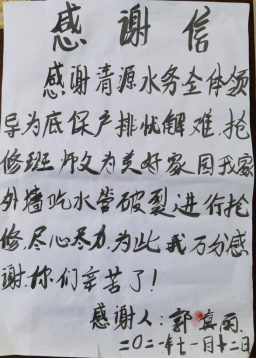 感谢信
感谢清源水务全体领
导为底保户排忧解难,抢
修班师文为美好家园我家
外墙吃水管破裂进行抢
修,尽心尽力,为此我万分感
谢,你们辛苦了!
感谢人:郭真雨
二〇二一年十一月十二日